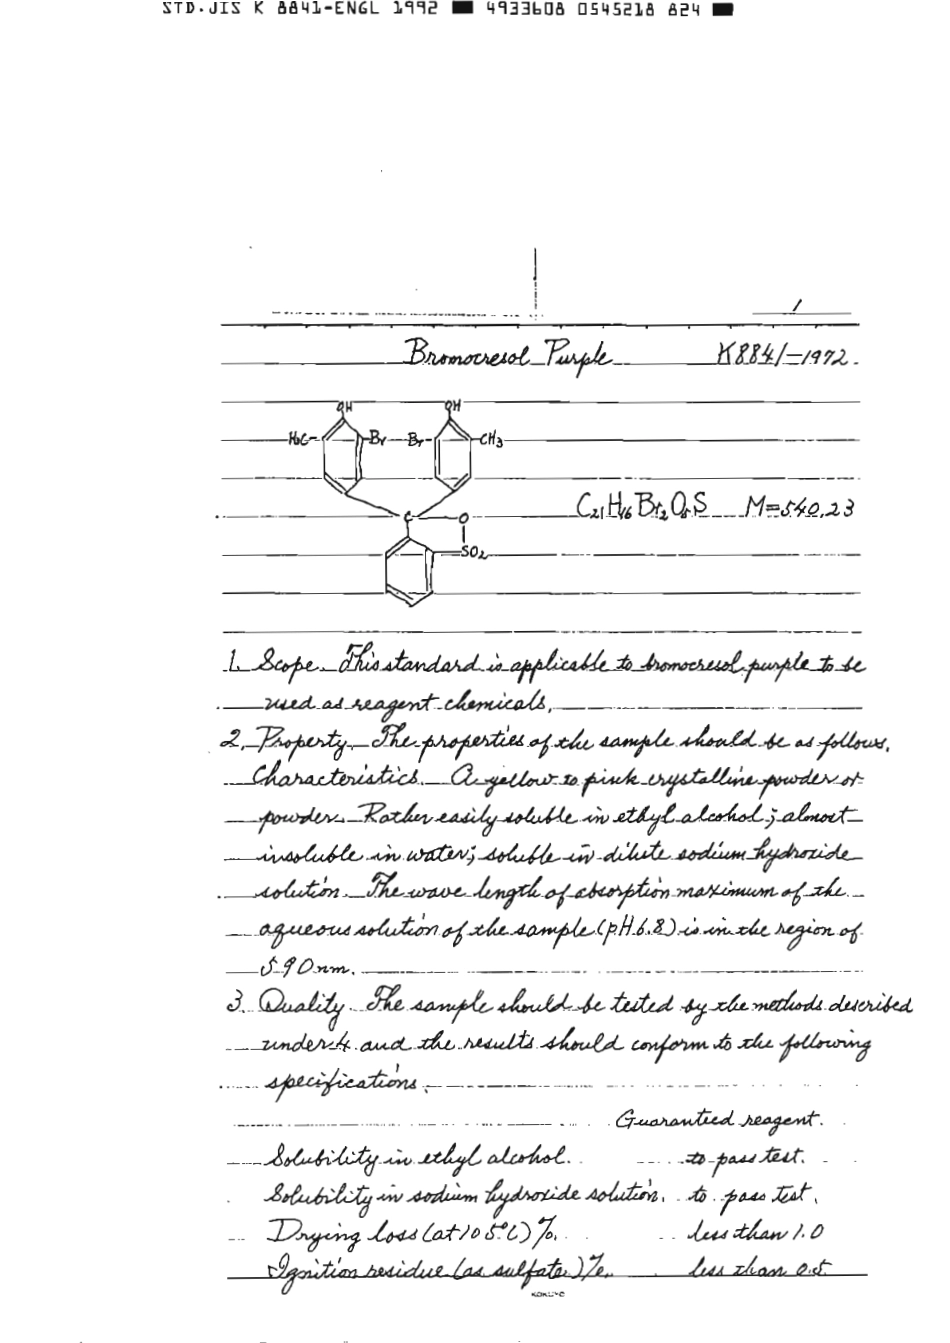 STD.JIS K 8841-ENGL 1992 ■ 4933608 0545218 824 ■
1
Bromocresol Purple K8841-1972.
OH OH
H3C- Br Br- -CH3
C O
SO2
C21H16Br2O5S M=540.23
1. Scope. This standard is applicable to bromocresol purple to be
used as reagent chemicals.
2. Property. The properties of the sample should be as follows.
Characteristics. A yellow to pink crystalline powder or
powder. Rather easily soluble in ethyl alcohol; almost
insoluble in water; soluble in dilute sodium hydroxide
solution. The wave length of absorption maximum of the
aqueous solution of the sample (pH 6.8) is in the region of
590 nm.
3. Quality. The sample should be tested by the methods described
under 4 and the results should conform to the following
specifications.
Guaranteed reagent.
Solubility in ethyl alcohol. to pass test.
Solubility in sodium hydroxide solution. to pass test.
Drying loss (at 105°C) %. less than 1.0
Ignition residue (as sulfate) %. less than 0.5
KOKUYO